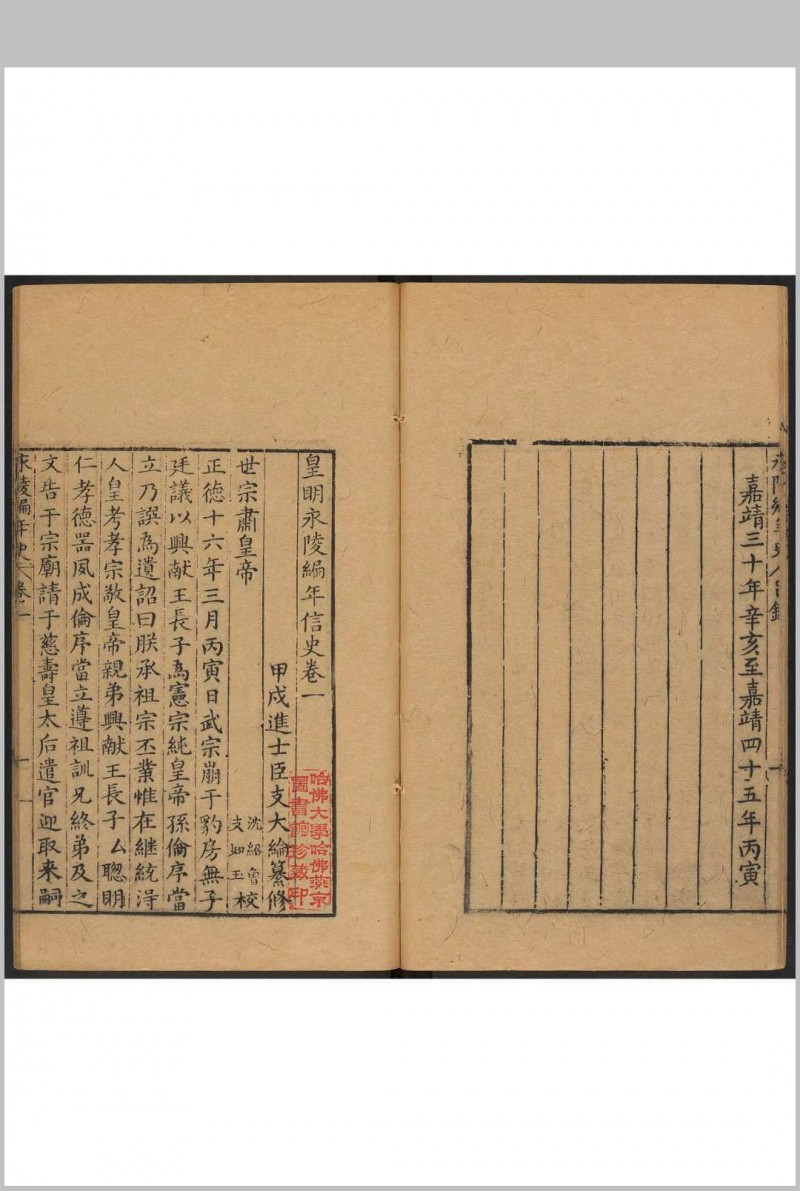 嘉靖三十年辛亥至嘉靖四十五年丙寅
皇明永陵編年信史卷一
甲戌進士臣支大綸纂修
沈紹魯
支如玉校
世宗肅皇帝
正德十六年三月丙寅日武宗崩于豹房無子
廷議以興献王長子為憲宗純皇帝孫倫序當
立乃譔為遺詔曰朕承祖宗丕業惟在継統淂
人皇考孝宗敬皇帝親弟興献王長子厶聰明
仁孝德器夙成倫序當立遵祖訓兄終弟及之
文告于宗廟請于慈壽皇太后遣官迎取来嗣
永陵編年史 卷一
一
哈佛大學哈佛燕京
圖書館珍藏印